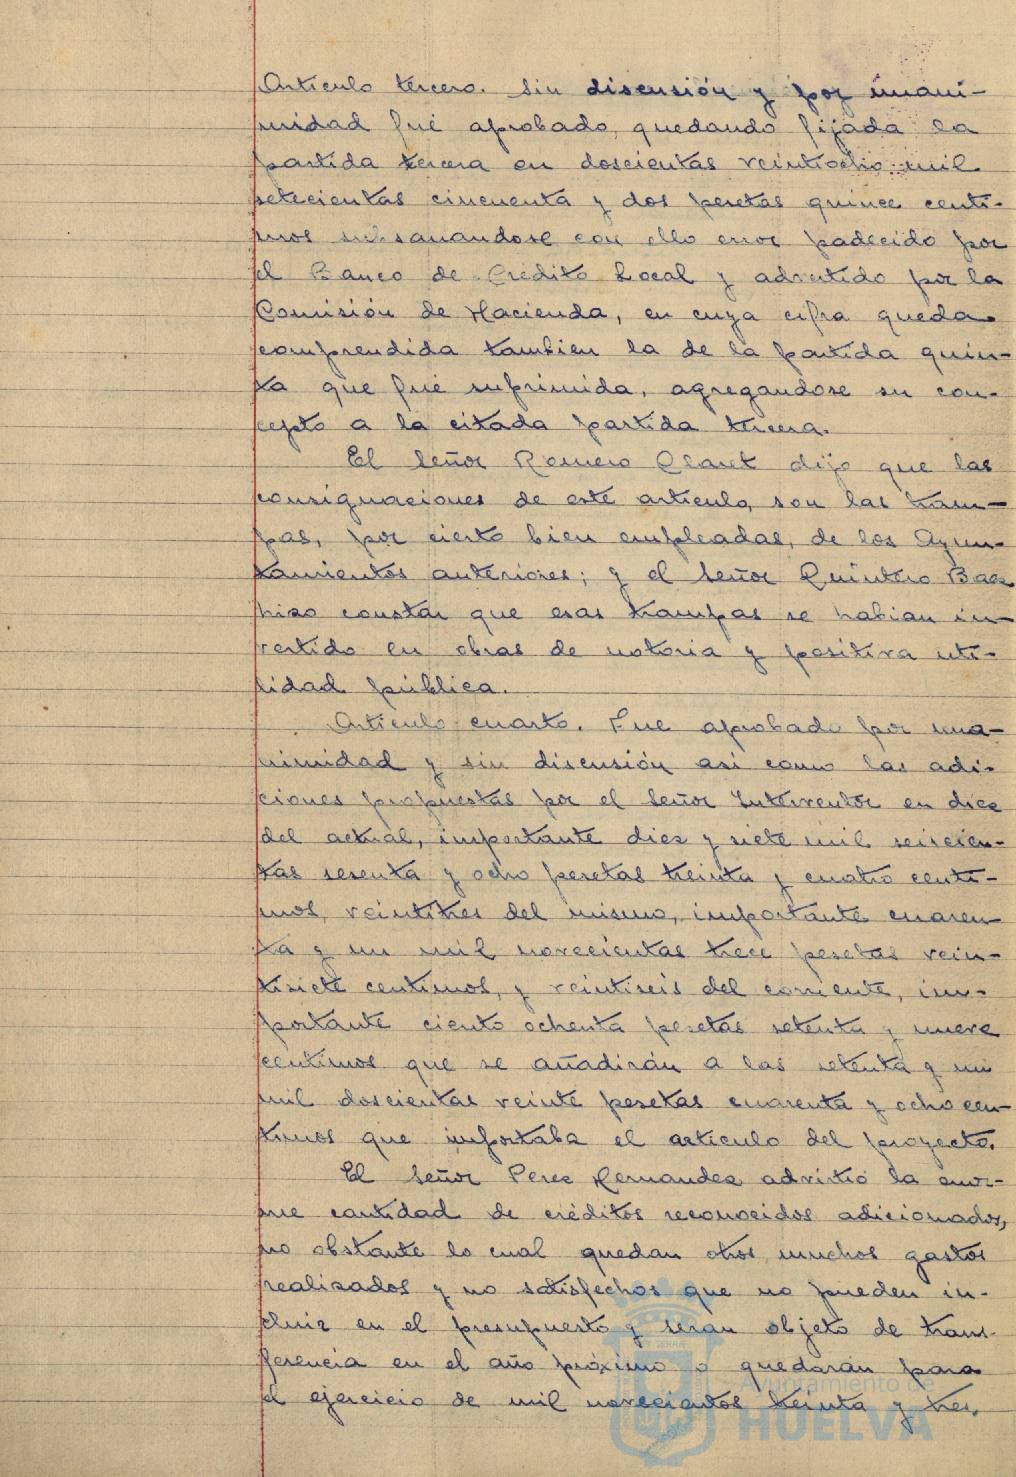 Articulo tercero. Sin discusión y por unani-
midad fué aprobado, quedando fijada la
partida tercera en doscientas veintiocho mil
setecientas cincuenta y dos pesetas quince centi-
mos subsanandose con ello error padecido por
el Banco de Crédito Local y advertido por la
Comisión de Hacienda, en cuya cifra queda
comprendida tambien la de la partida quin-
ta que fué suprimida, agregandose su con-
cepto a la citada partida tercera.
El Señor Romero Claret dijo que las
consignaciones de este articulo, son las tram-
pas, por cierto bien empleadas, de los Ayun-
tamientos anteriores; y el Señor Quintero Baez
hizo constar que esas trampas se habian in-
vertido en obras de notoria y positiva uti-
lidad pública.
Articulo cuarto. Fue aprobado por una-
nimidad y sin discusión asi como las adi-
ciones propuestas por el Señor Interventor en diez
del actual, importante diez y siete mil seiscien-
tas sesenta y ocho pesetas treinta y cuatro centi-
mos, veintitres del mismo, importante cuaren-
ta y un mil novecientas trece pesetas vein-
tisiete centimos, y veintiseis del corriente, im-
portante ciento ochenta pesetas setenta y nueve
centimos que se añadirán a las setenta y un
mil doscientas veinte pesetas cuarenta y ocho cen-
timos que importaba el articulo del proyecto.
El Señor Perez Hernandez advirtió la enor-
me cantidad de créditos reconocidos adicionados,
no obstante lo cual quedan otros muchos gastos
realizados y no satisfechos que no pueden in-
cluir en el presupuesto y seran objeto de trans-
ferencia en el año próximo o quedarán para
el ejercicio de mil novecientos treinta y tres.
Ayuntamiento de
HUELVA